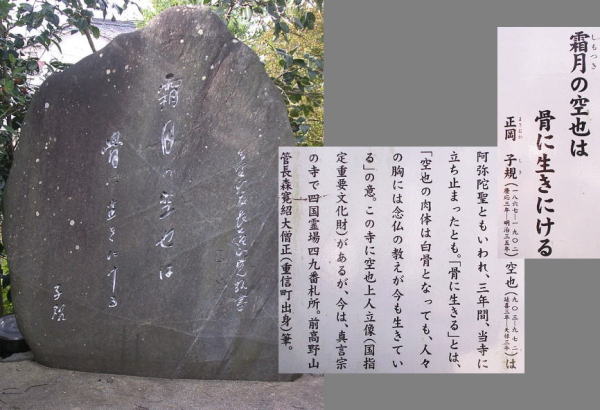 霜月の空也は
骨に生きにける
子規
霜月の空也は
しもつき
骨に生きにける
正岡 子規(一八六七―一九〇二)空也(九〇三―九七二)は
まさおか しき(慶応三年―明治三五年)(延喜三年―天禄三年)
阿弥陀聖ともいわれ、三年間、当寺に
立ち止まったとも。「骨に生きる」とは、
「空也の肉体は白骨となっても、人々
の胸には念仏の教えが今も生きてい
る」の意。この寺に空也上人立像(国指
定重要文化財)があるが、今は、真言宗
の寺で四国霊場四九番札所。前高野山
管長森寛紹大僧正(重信町出身)筆。